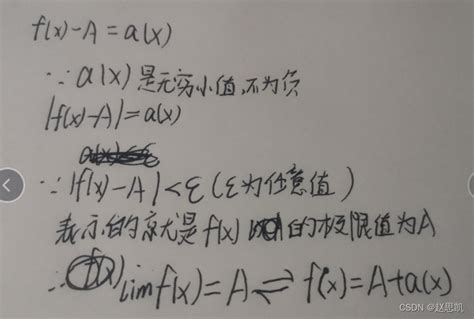 f(x)-A=a(x)
∵a(x)是无穷小值,不为负
|f(x)-A|=a(x)
∵|f(x)-A|<ε(ε为任意值)
表示的就是f(x)的极限值为A
∴lim f(x)=A⇌f(x)=A+a(x)
CSDN @赵思凯